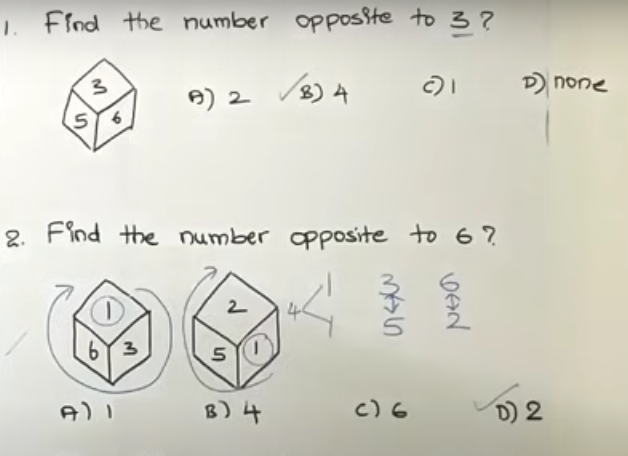 1. Find the number opposite to 3?
3
5 6
A) 2 ✓B) 4 C) 1 D) none
2. Find the number opposite to 6?
1 2 1 3 6
4 < ↕ ↕
6 3 5 1 1 5 2
A) 1 B) 4 C) 6 ✓D) 2